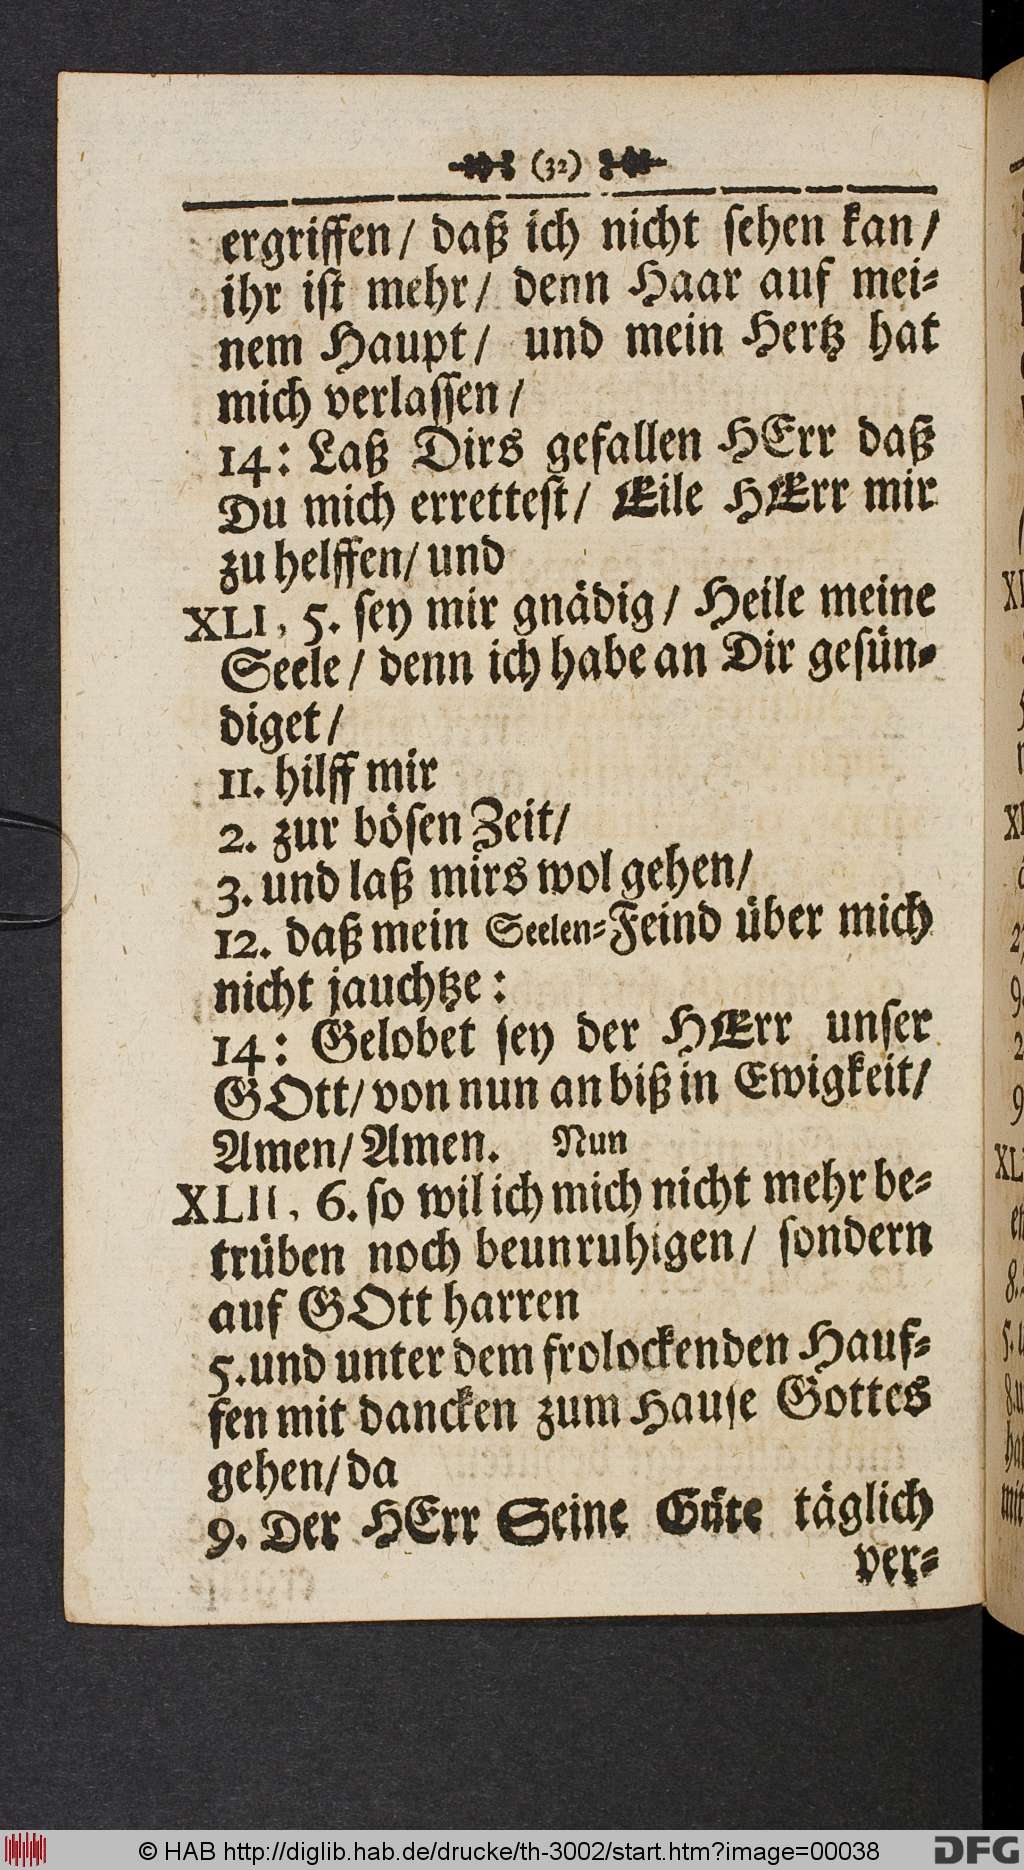 (32)
ergriffen/ daß ich nicht sehen kan/
ihr ist mehr/ denn Haar auf mei-
nem Haupt/ und mein Hertz hat
mich verlassen/
14: Laß Dirs gefallen HErr daß
Du mich errettest/ Eile HErr mir
zu helffen/ und
XLI, 5. sey mir gnädig/ Heile meine
Seele/ denn ich habe an Dir gesün-
diget/
11. hilff mir
2. zur bösen Zeit/
3. und laß mirs wol gehen/
12. daß mein Seelen-Feind über mich
nicht jauchtze:
14: Gelobet sey der HErr unser
GOtt/ von nun an biß in Ewigkeit/
Amen/ Amen. Nun
XLII, 6. so wil ich mich nicht mehr be-
trüben noch beunruhigen/ sondern
auf GOtt harren
5. und unter dem frolockenden Hauf-
fen mit dancken zum Hause Gottes
gehen/ da
9. Der HErr Seine Güte täglich
ver-
© HAB http://diglib.hab.de/drucke/th-3002/start.htm?image=00038
DFG